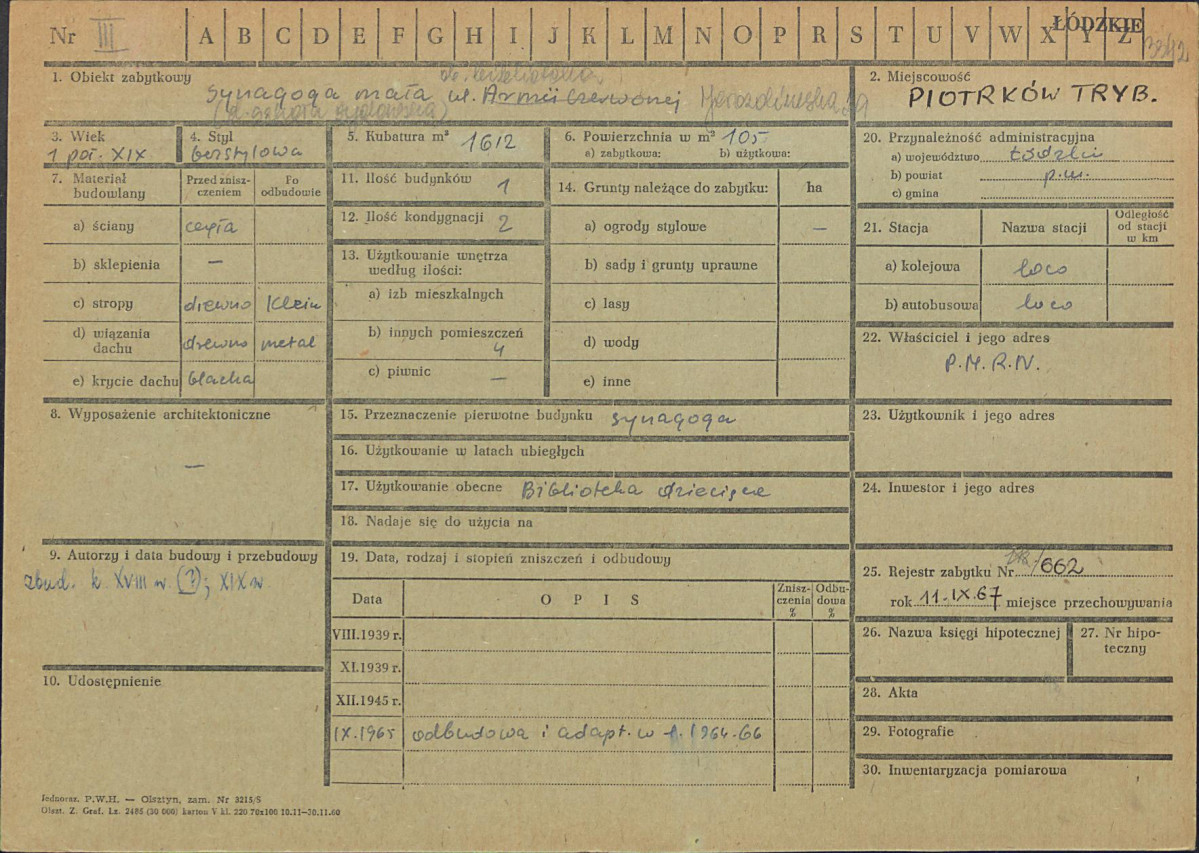 Nr III A B C D E F G H I J K L M N O P R S T U V W X Y Z
ŁÓDZKIE
1. Obiekt zabytkowy
ob. biblioteka
synagoga mała ul. Armii Czerwonej Jerozolimska
2. Miejscowość
PIOTRKÓW TRYB.
3. Wiek
1 poł. XIX
4. Styl
bezstylowa
5. Kubatura m³ 1612
6. Powierzchnia w m² 105
a) zabytkowa: b) użytkowa:
7. Materiał budowlany
Przed znisz-
czeniem
Po
odbudowie
a) ściany cegła
b) sklepienia —
c) stropy drewno Klein
d) wiązania
dachu drewno metal
e) krycie dachu blacha
8. Wyposażenie architektoniczne
—
9. Autorzy i data budowy i przebudowy
zbud. k. XVIII w (?); XIX w
10. Udostępnienie
11. Ilość budynków 1
12. Ilość kondygnacji 2
13. Użytkowanie wnętrza
według ilości:
a) izb mieszkalnych
b) innych pomieszczeń
4
c) piwnic —
14. Grunty należące do zabytku: ha
a) ogrody stylowe —
b) sady i grunty uprawne
c) lasy
d) wody
e) inne
15. Przeznaczenie pierwotne budynku synagoga
16. Użytkowanie w latach ubiegłych
17. Użytkowanie obecne Biblioteka dziecięca
18. Nadaje się do użycia na
19. Data, rodzaj i stopień zniszczeń i odbudowy
Data OPIS
Znisz-
czenia
%
Odbu-
dowa
%
VIII.1939 r.
XI.1939 r.
XII.1945 r.
IX.1965 odbudowa i adapt. w l. 1964-66
20. Przynależność administracyjna
a) województwo Łódzkie
b) powiat p.m.
c) gmina
21. Stacja Nazwa stacji
Odległość
od stacji
w km
a) kolejowa loco
b) autobusowa loco
22. Właściciel i jego adres
P.M.R.N.
23. Użytkownik i jego adres
24. Inwestor i jego adres
25. Rejestr zabytku Nr 662
rok 11.IX.67 miejsce przechowywania
26. Nazwa księgi hipotecznej
27. Nr hipo-
teczny
28. Akta
29. Fotografie
30. Inwentaryzacja pomiarowa
Jednoraz. P.W.H. — Olsztyn, zam. Nr 3215/S
Olszt. Z. Graf. Lz. 2485 (30 000) karton V kl. 220 70x100 10.11—30.11.60